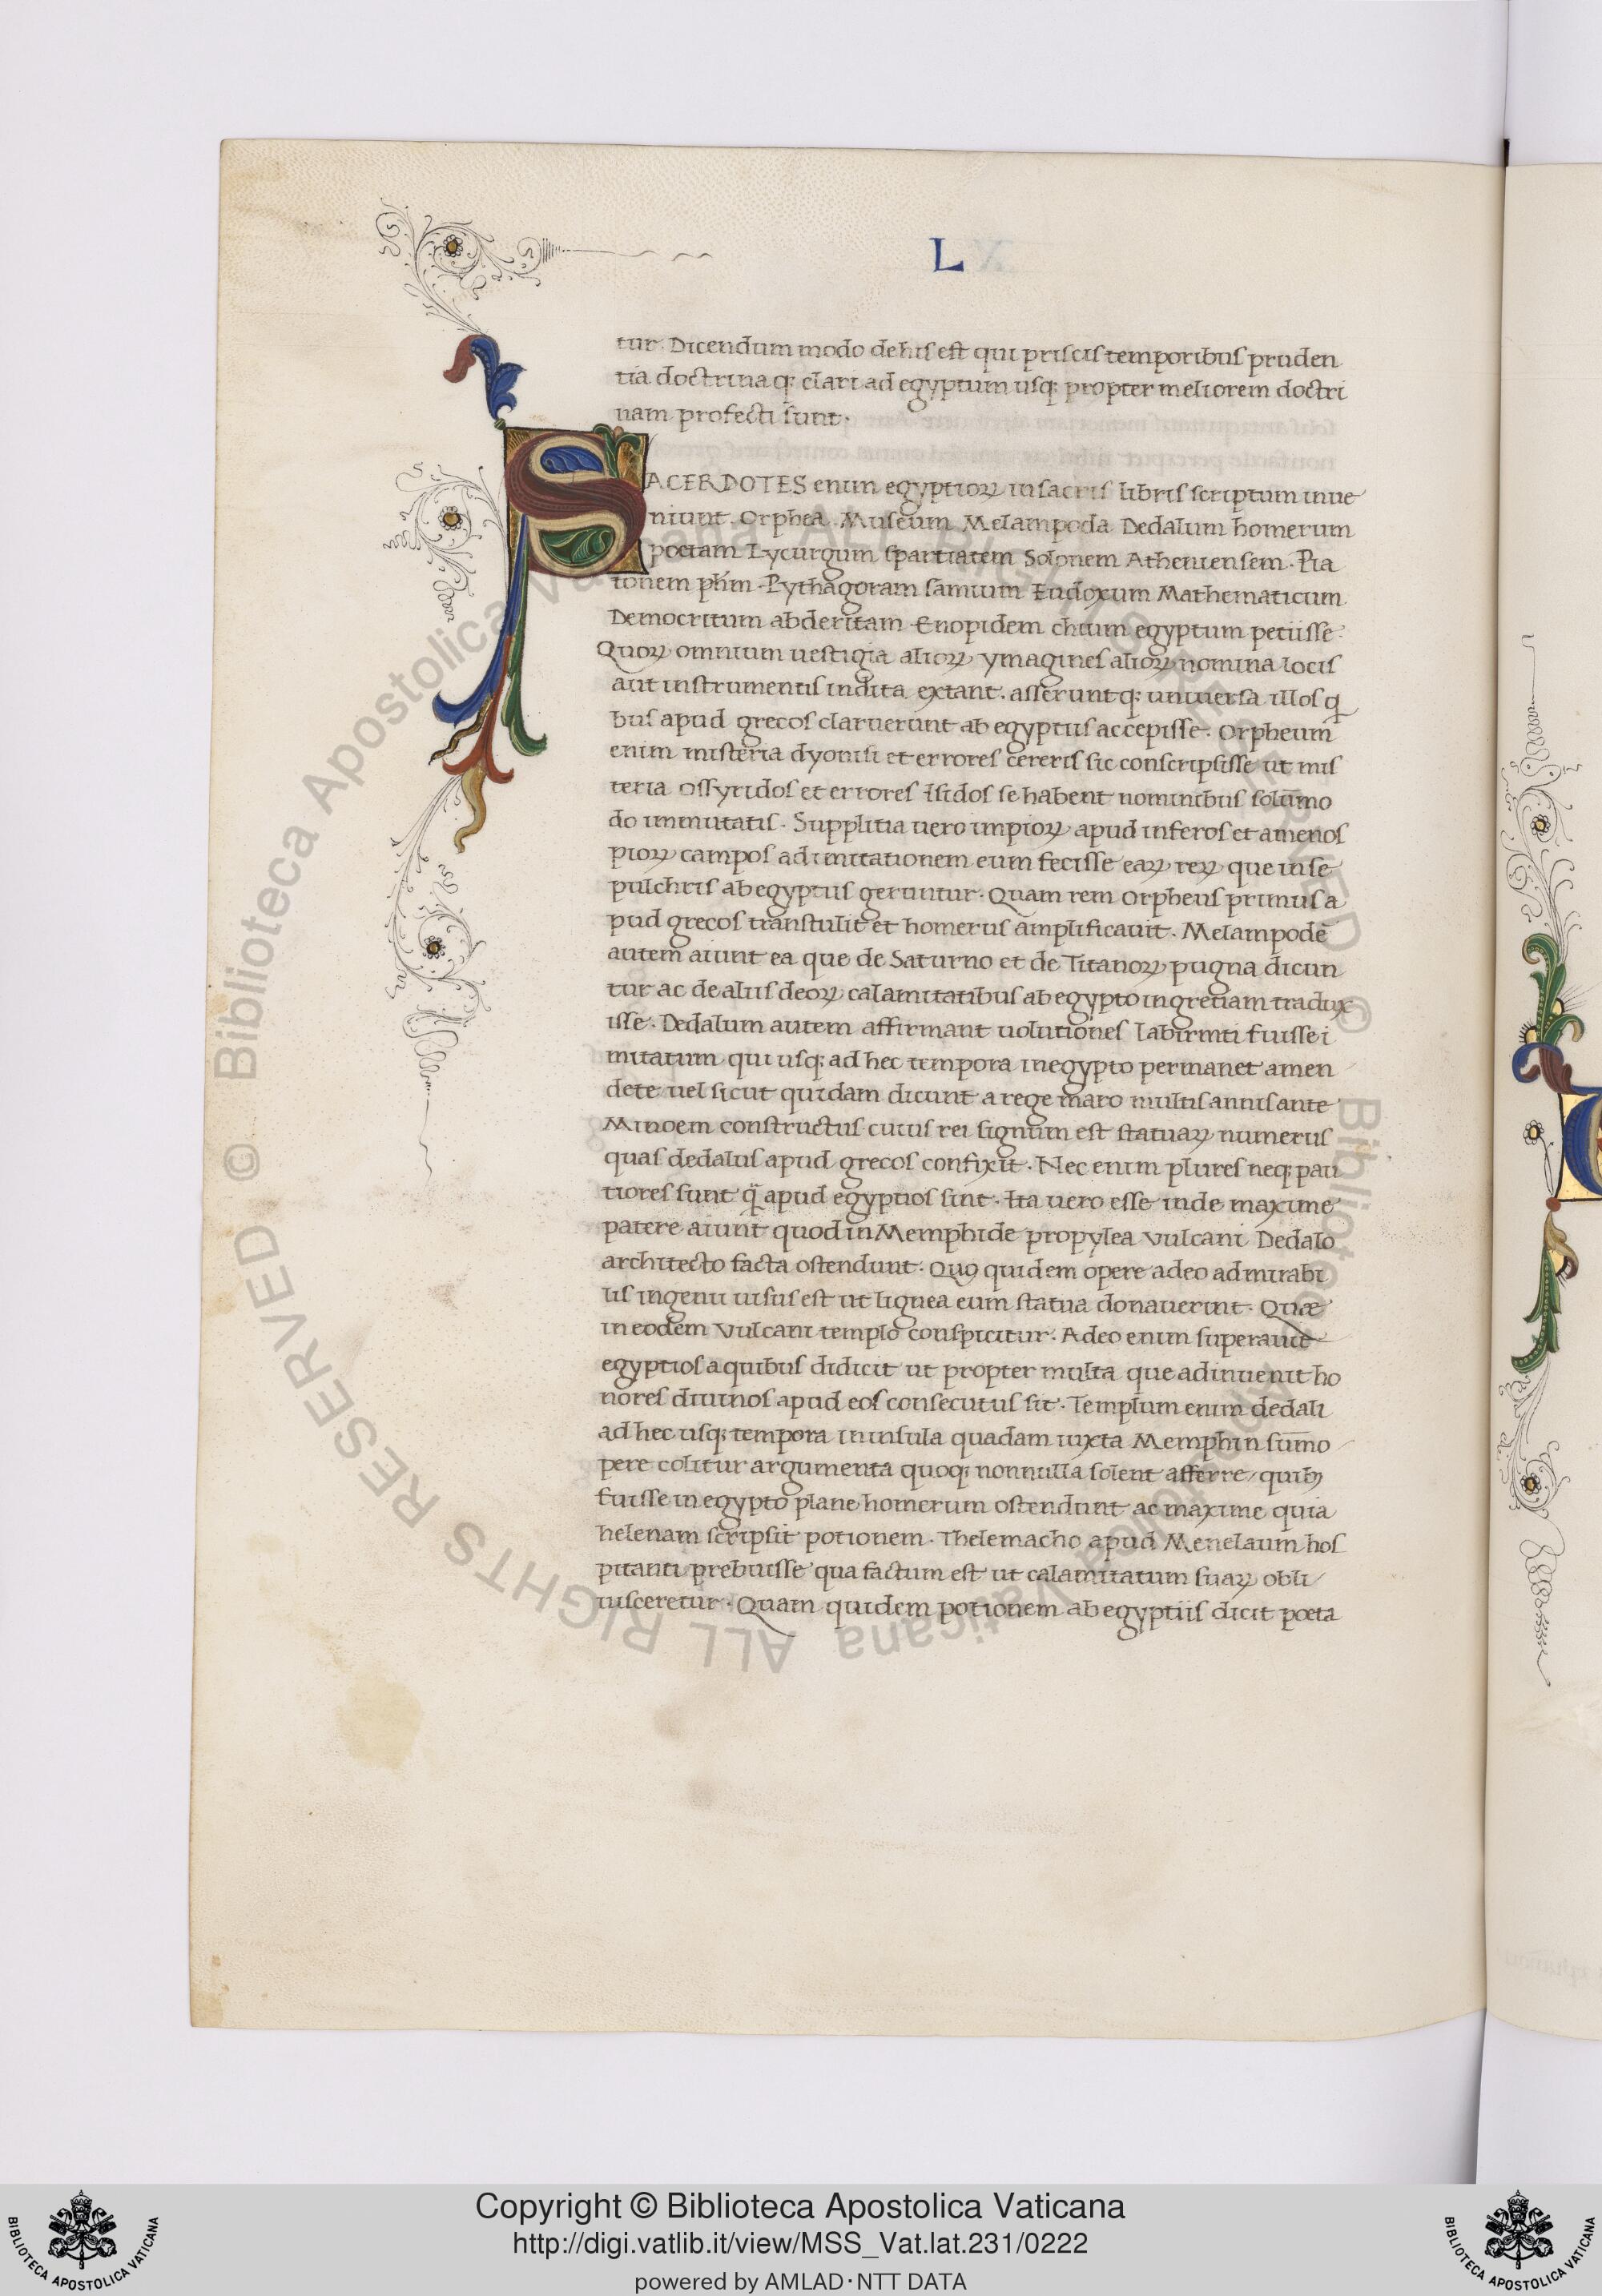 L
tur. Dicendum modo de his est qui priscis temporibus pruden
tia doctrina q; clari ad egyptum usq; propter meliorem doctri
nam profecti sunt.
SACERDOTES enim egyptioꝝ in sacris libris scriptum inue
niunt. Orphea. Museum. Melampoda Dedalum homerum
poetam Lycurgum spartiatem Solonem Atheniensem. Pla
tonem phm. Pythagoram samium Eudoxum Mathematicum
Democritum abderitam Enopidem chium egyptum petiisse.
Quoꝝ omnium uestigia alioꝝ ymagines alioꝝ nomina locis
aut instrumentis indita extant. asserunt q; universa illos q
bus apud grecos claruerunt ab egyptiis accepisse. Orpheum
enim misteria dyonisi et errores cereris sic conscripsisse ut mis
teria ossyridos et errores isidos se habent nominibus solumo
do immutatis. Supplitia uero impioꝝ apud inferos et amenos
pioꝝ campos ad imitationem eum fecisse eaꝝ reꝝ que in se
pulchris ab egyptiis geruntur. Quam rem Orpheus primus a
pud grecos transtulit et homerus amplificavit. Melampode
autem aiunt ea que de Saturno et de Titanoꝝ pugna dicun
tur ac de aliis deoꝝ calamitatibus ab egypto in gretiam tradux
isse. Dedalum autem affirmant uolutiones labirinti fuisse i
mitatum qui usq; ad hec tempora in egypto permanet amen
dete uel sicut quidam dicunt a rege maro multis annis ante
Minoem constructus cuius rei signum est statuaꝝ numerus
quas dedalus apud grecos confixit. Nec enim plures neq; pau
tiores sunt q̄ apud egyptios sint. Ita uero esse inde maxime
patere aiunt quod in Memphide propylea Vulcani Dedalo
architecto facta ostendunt. Quo quidem opere adeo admirabi
lis ingenii uisus est ut lignea eum statua donauerint. Quæ
in eodem Vulcani templo conspicitur. Adeo enim superauit
egyptios a quibus didicit ut propter multa que adinuenit ho
nores diuinos apud eos consecutus sit. Templum enim dedali
ad hec usq; tempora in insula quadam iuxta Memphin sūmo
pere colitur argumenta quoq; nonnulla solent afferre / quibꝫ
fuisse in egypto plane homerum ostendunt ac maxime quia
helenam scripsit potionem. Thelemacho apud Menelaum hos
pitanti prebuisse qua factum est ut calamitatum suaꝝ obli
uisceretur. Quam quidem potionem ab egyptiis dicit poeta
© Biblioteca Apostolica Vaticana ALL RIGHTS RESERVED © Biblioteca Apostolica Vaticana ALL RIGHTS RESERVED
BIBLIOTECA APOSTOLICA VATICANA
Copyright © Biblioteca Apostolica Vaticana
http://digi.vatlib.it/view/MSS_Vat.lat.231/0222
powered by AMLAD·NTT DATA
BIBLIOTECA APOSTOLICA VATICANA